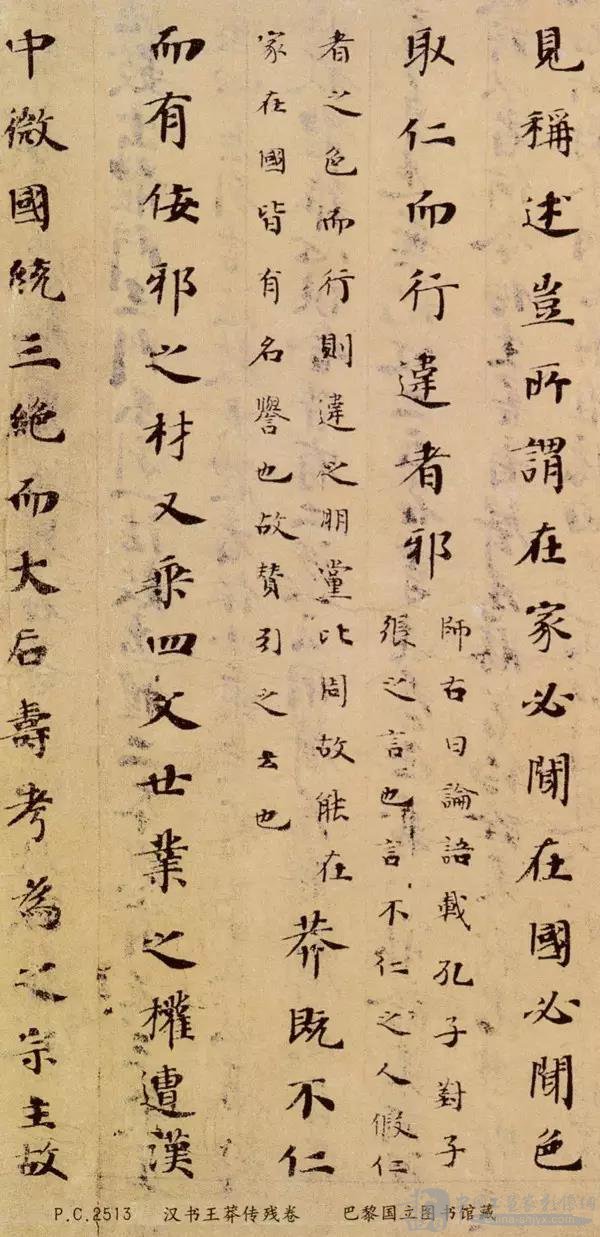 見稱述豈所謂在家必聞在國必聞色
取仁而行違者邪
師古曰論語載孔子對子
張之言也言不仁之人假仁
者之色而行則違之朋黨比周故能在
家在國皆有名譽也故賛引之云也
莽既不仁
而有佞邪之材又乗四父世業之權遭漢
中微國統三絕而大后壽考為之宗主故
P.C.2513 汉书王莽传残卷 巴黎国立图书馆藏